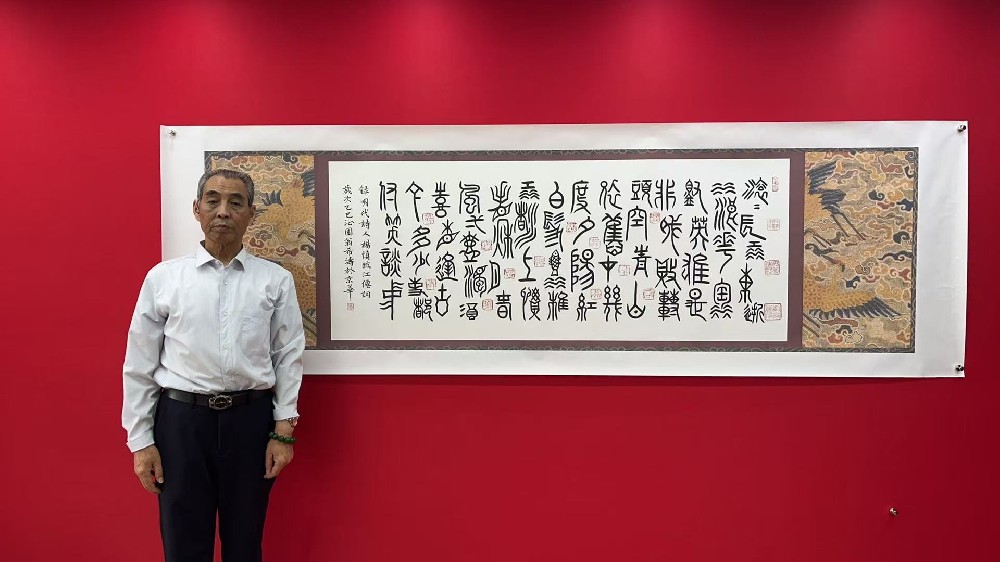 滾〻長江東逝
水浪花淘
盡英雄是
非成敗轉
頭空青山
依舊在幾
度夕陽紅
白髮漁樵
江渚上慣
看秋月春
風一壺濁酒
喜相逢古
今多少事都
付笑談中
錄明代詩人楊慎臨江僊詞
歲次乙巳沁園翁希濤於京華